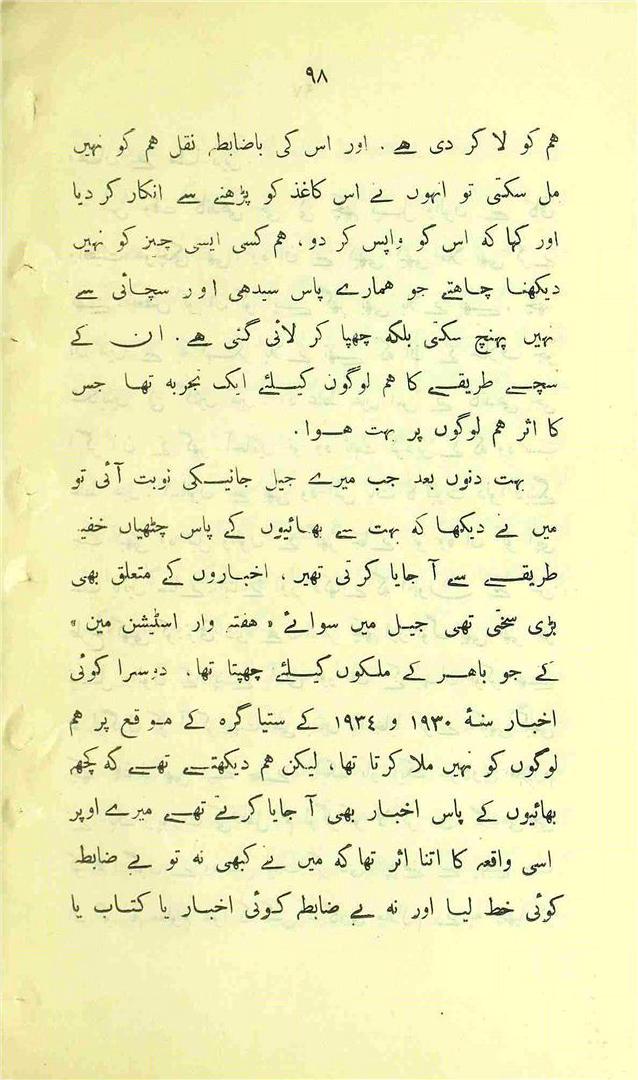 ٩٨
ہم کو لا کر دی ہے . اور اس کی باضابطہ نقل ہم کو نہیں
مل سکتی تو انہوں نے اس کاغذ کو پڑھنے سے انکار کر دیا
اور کہا کہ اس کو واپس کر دو ، ہم کسی ایسی چیز کو نہیں
دیکھنا چاہتے جو ہمارے پاس سیدھی اور سچائی سے
نہیں پہنچ سکتی بلکہ چھپا کر لائی گئی ہے . ان کے
سچے طریقے کا ہم لوگوں کیلئے ایک تجربہ تھا جس
کا اثر ہم لوگوں پر بہت ہوا .
بہت دنوں بعد جب میرے جیل جانیکی نوبت آئی تو
میں نے دیکھا کہ بہت سے بھائیوں کے پاس چٹھیاں خفیہ
طریقے سے آ جایا کرتی تھیں ، اخباروں کے متعلق بھی
بڑی سختی تھی جیل میں سوائے « ہفتہ وار اسٹیشن مین »
کے جو باہر کے ملکوں کیلئے چھپتا تھا ، دوسرا کوئی
اخبار سنۂ ١٩٣٠ و ١٩٣٤ کے ستیا گرہ کے موقع پر ہم
لوگوں کو نہیں ملا کرتا تھا ، لیکن ہم دیکھتے تھے کہ کچھ
بھائیوں کے پاس اخبار بھی آ جایا کرتے تھے میرے اوپر
اسی واقعہ کا اتنا اثر تھا کہ میں نے کبھی نہ تو بے ضابطہ
کوئی خط لیا اور نہ بے ضابطہ کوئی اخبار یا کتاب یا